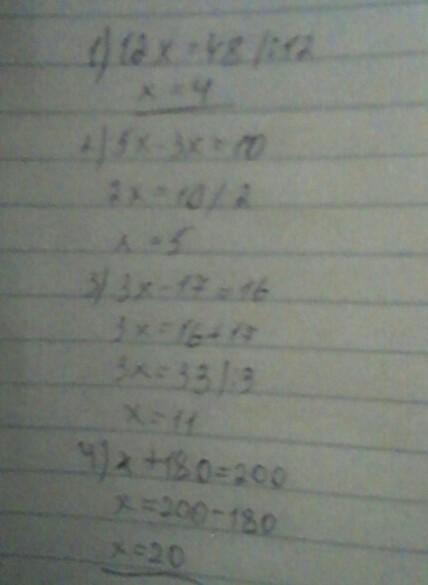 1) 12x=48/:12
x=4
2) 5x-3x=10
2x=10/:2
x=5
3) 3x-17=16
3x=16+17
3x=33/:3
x=11
4) x+180=200
x=200-180
x=20